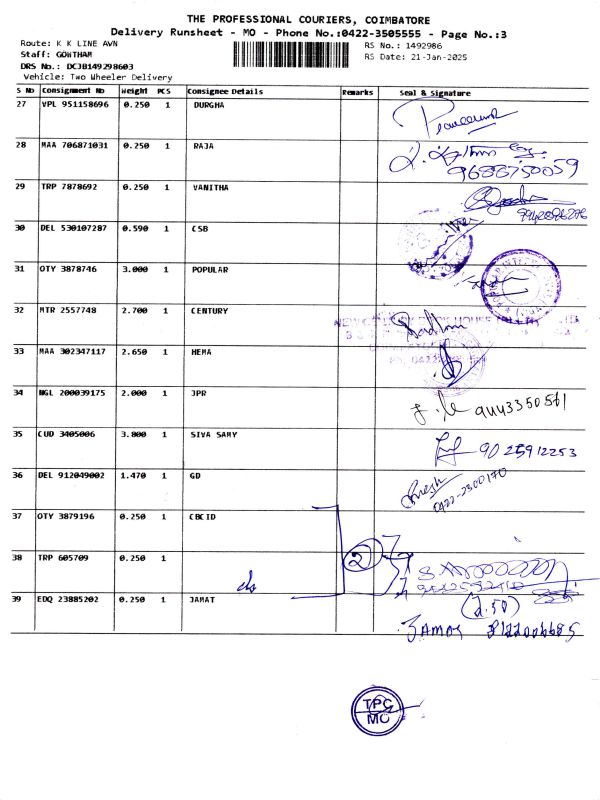 THE PROFESSIONAL COURIERS, COIMBATORE
Delivery Runsheet - MO - Phone No.:0422-3505555 - Page No.:3
Route: K K LINE AVN RS No.: 1492986
Staff: GOWTHAM RS Date: 21-Jan-2025
DRS No.: DCJB149298603
Vehicle: Two Wheeler Delivery
S No Consignment No Weight PCS Consignee Details Remarks Seal & Signature
27 VPL 951158696 0.250 1 DURGHA
28 MAA 706871031 0.250 1 RAJA
9688750059
29 TRP 7878692 0.250 1 VANITHA
30 DEL 530107287 0.590 1 CSB
31 OTY 3878746 3.000 1 POPULAR
32 MTR 2557748 2.700 1 CENTURY
33 MAA 302347117 2.650 1 HEMA
34 NGL 200039175 2.000 1 JPR
9443350561
35 CUD 3405006 3.800 1 SIVA SAMY 9025912253
36 DEL 912049002 1.470 1 GD
0422-2300170
37 OTY 3879196 0.250 1 CBCID
38 TRP 605709 0.250 1 2
39 EDQ 23885202 0.250 1 JAMAT (2.50)
8122006685
TPC
MO